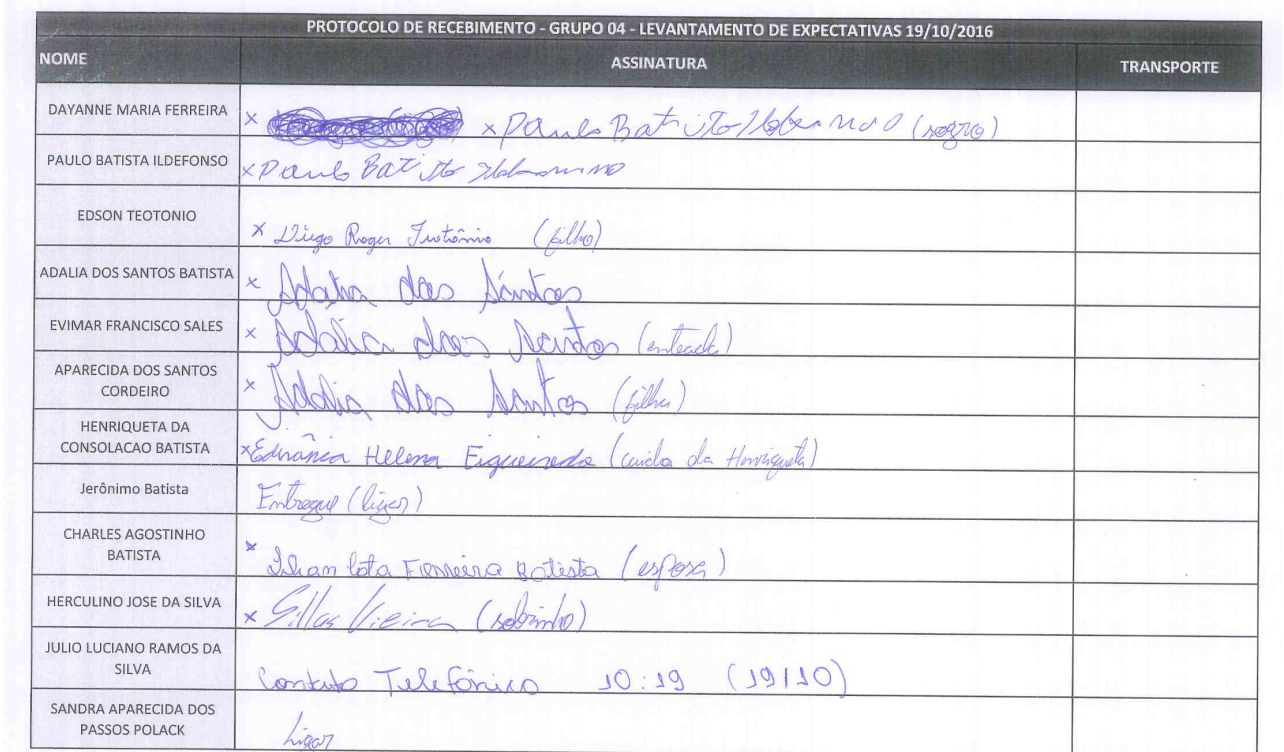 PROTOCOLO DE RECEBIMENTO - GRUPO 04 - LEVANTAMENTO DE EXPECTATIVAS 19/10/2016
NOME ASSINATURA TRANSPORTE
DAYANNE MARIA FERREIRA x x Paulo Batisto (sogro)
PAULO BATISTA ILDEFONSO x Paulo Batisto
EDSON TEOTONIO
x Diego Roger Teotônio (filho)
ADALIA DOS SANTOS BATISTA x Adalia dos Santos
EVIMAR FRANCISCO SALES x Adalia dos Santos (enteada)
APARECIDA DOS SANTOS
CORDEIRO x Adalia dos Santos (filha)
HENRIQUETA DA
CONSOLACAO BATISTA x Edivânia Helena Figueiredo (cuida da Henriqueta)
Jerônimo Batista Entregue (ligar)
CHARLES AGOSTINHO
BATISTA x Ferreira Batista (esposa)
HERCULINO JOSE DA SILVA x Sillas Vieira (sobrinho)
JULIO LUCIANO RAMOS DA
SILVA Contato Telefônico 10:19 (19/10)
SANDRA APARECIDA DOS
PASSOS POLACK Ligar